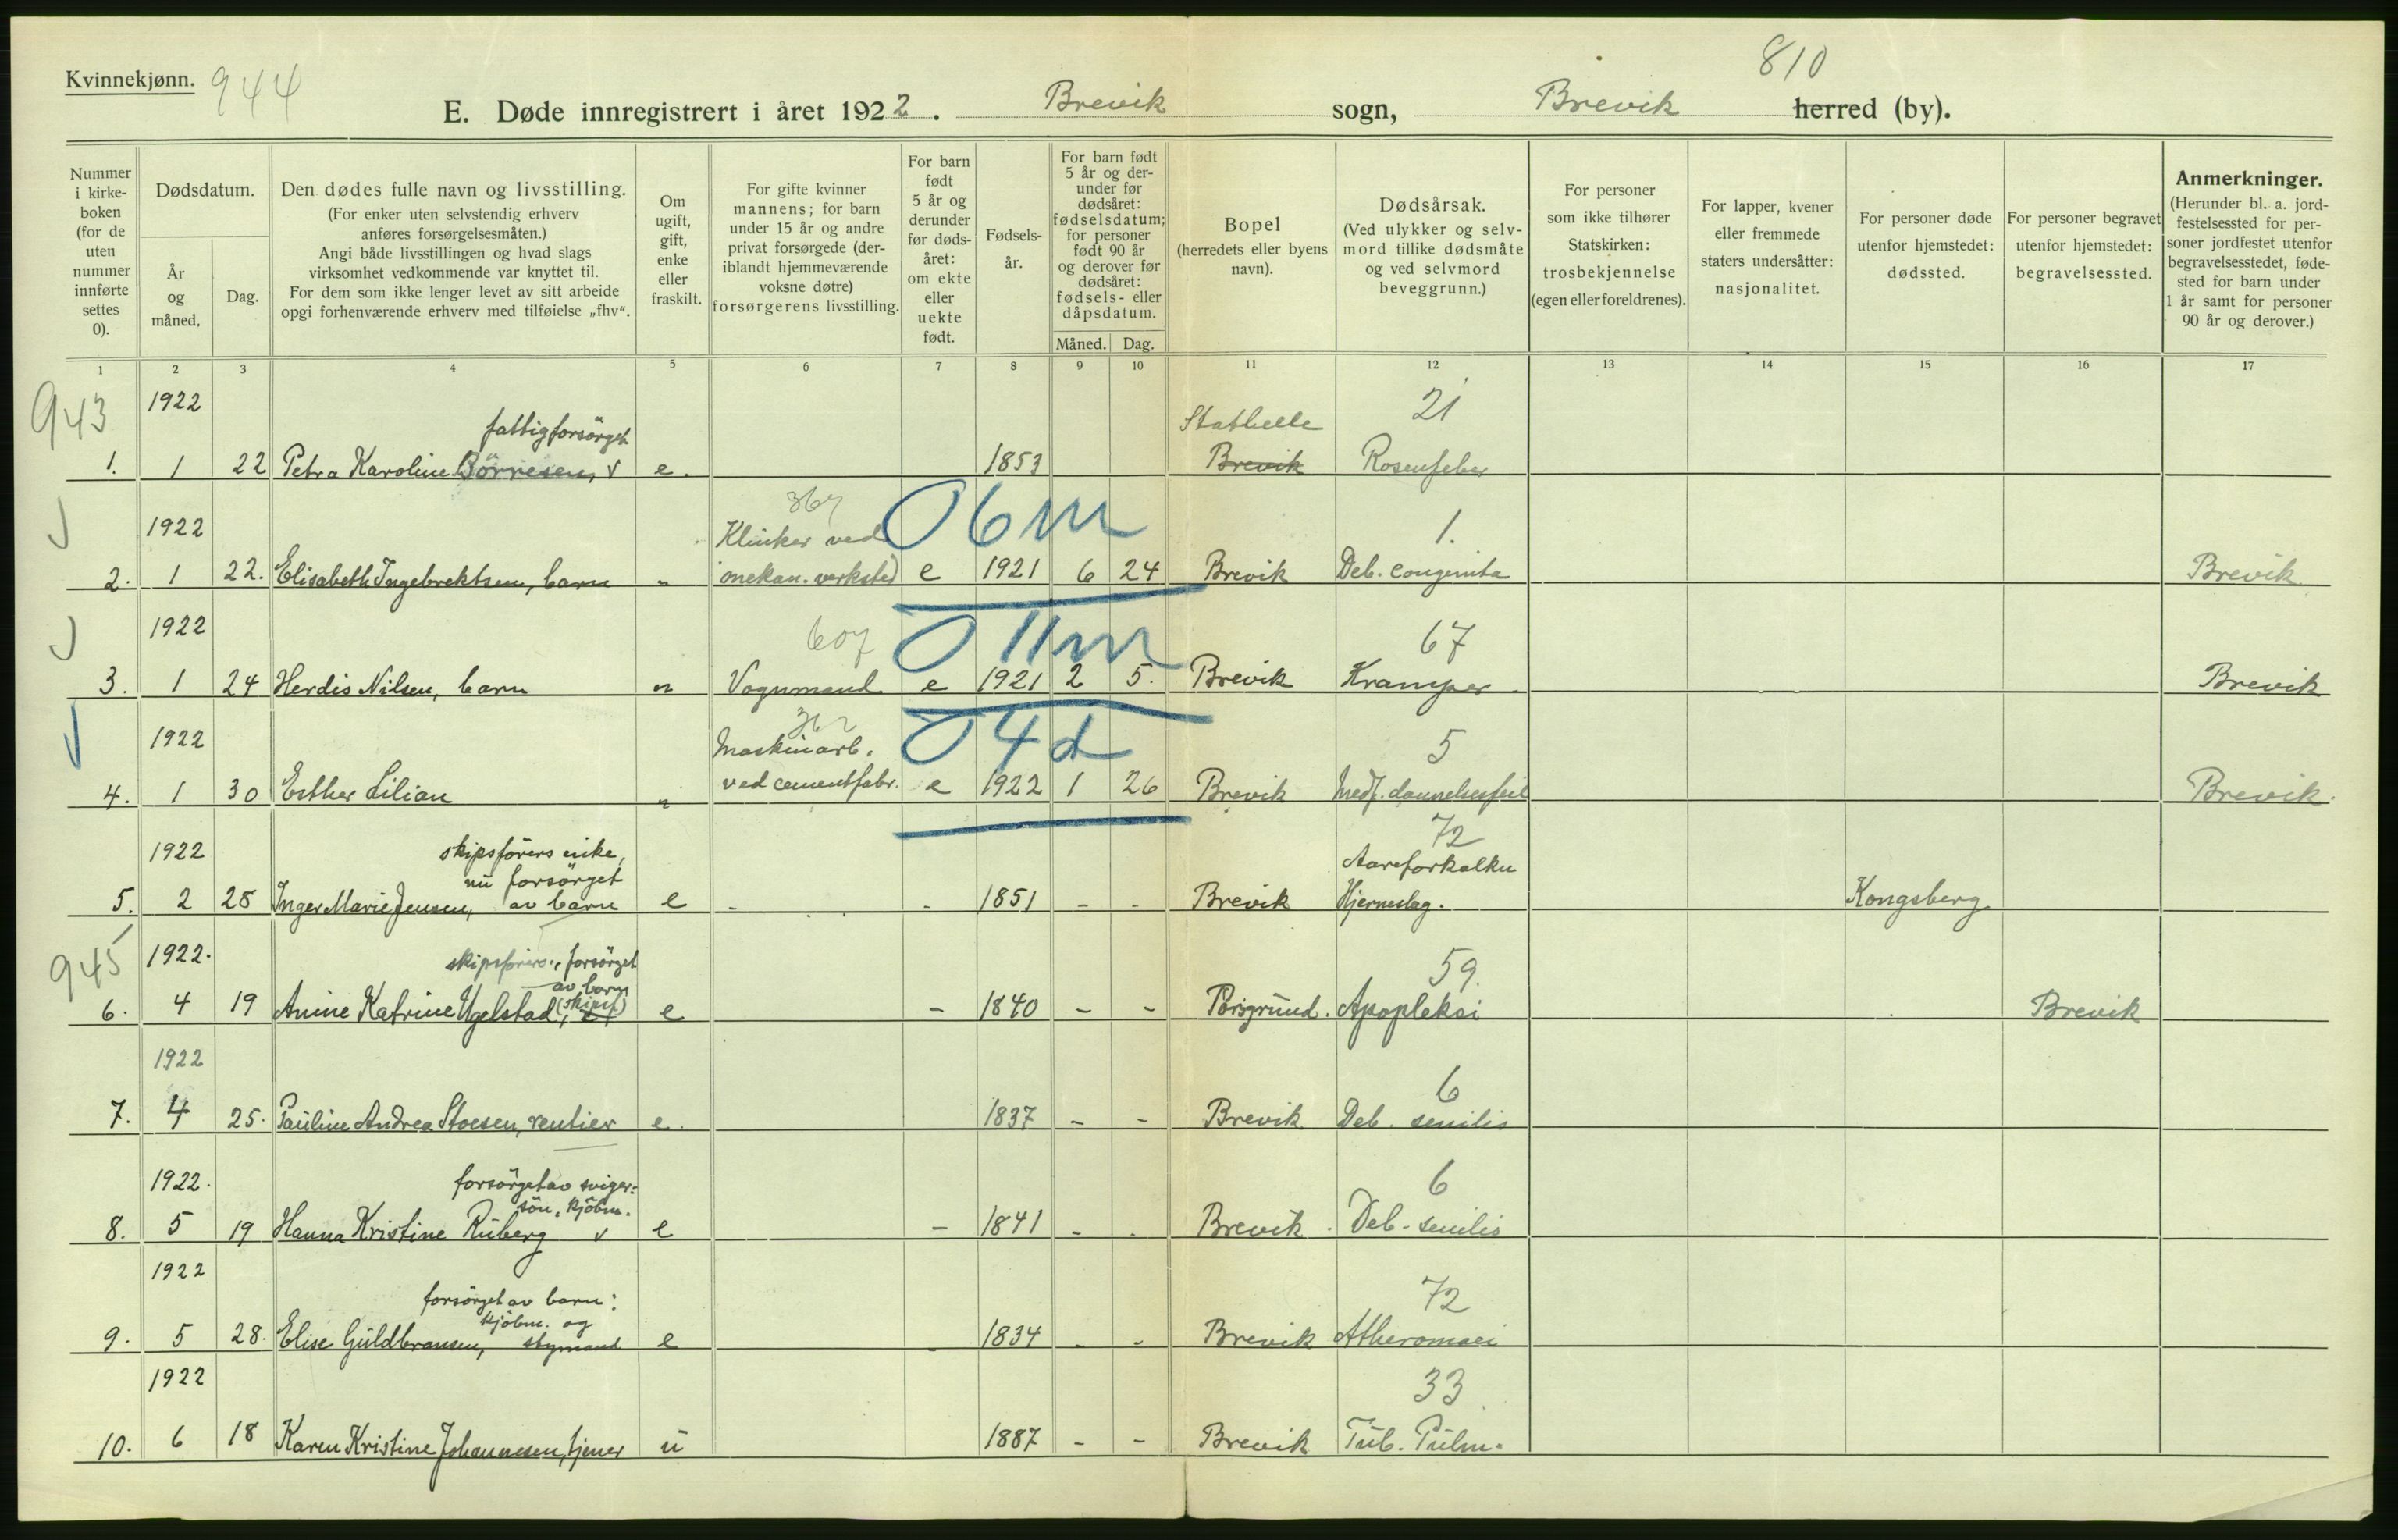 Kvinnekjønn.
944
810
E. Døde innregistrert i året 1922. Brevik sogn, Brevik herred (by).
Nummer i kirke-boken (for de uten nummer innførte settes 0).
Dødsdatum.
År og måned.
Dag.
Den dødes fulle navn og livsstilling.
(For enker uten selvstendig erhverv anføres forsørgelsesmåten.)
Angi både livsstillingen og hvad slags virksomhet vedkommende var knyttet til.
For dem som ikke lenger levet av sitt arbeide opgi forhenværende erhverv med tilføielse „fhv“.
Om ugift, gift, enke eller fraskilt.
For gifte kvinner mannens; for barn under 15 år og andre privat forsørgede (der-iblandt hjemmeværende voksne døtre) forsørgerens livsstilling.
For barn født 5 år og derunder før døds-året: om ekte eller uekte født.
Fødsels-år.
For barn født 5 år og der-under før dødsåret: fødselsdatum; for personer født 90 år og derover før dødsåret: fødsels- eller dåpsdatum.
Måned.
Dag.
Bopel
(herredets eller byens navn).
Dødsårsak.
(Ved ulykker og selv-mord tillike dødsmåte og ved selvmord beveggrunn.)
For personer som ikke tilhører Statskirken: trosbekjennelse (egen eller foreldrenes).
For lapper, kvener eller fremmede staters undersåtter: nasjonalitet.
For personer døde utenfor hjemstedet: dødssted.
For personer begravet utenfor hjemstedet: begravelsessted.
Anmerkninger.
(Herunder bl. a. jord-festelsessted for per-soner jordfestet utenfor begravelsesstedet, føde-sted for barn under 1 år samt for personer 90 år og derover.)
1 2 3 4 5 6 7 8 9 10 11 12 13 14 15 16 17
943 1922 fattigforsörget Stathelle 21
1. 1 22 Petra Karoline Börresen, v e. 1853 Brevik Rosenfeber
1922 367 Klinker ved 06m 1.
2. 1 22. Elisabeth Ingebrektsen, barn " mekan. verksted e 1921 6 24 Brevik Deb. congenita Brevik
1922 607 0 11m 67
3. 1 24 Herdis Nilsen, barn " Vognmand e 1921 2 5. Brevik Kramper Brevik
1922 362 Maskinarb. 04d 5
4. 1 30 Esther Lilian " ved cementfabr. e 1922 1 26 Brevik Medf. dannelsesfeil Brevik.
1922 skipsförers enke, 72
nu forsörget Aareforkalkn
5. 2 28 Inger Marie Jensen, av barn e - - 1851 - - Brevik Hjerneslag. Kongsberg
945 1922. skipsförers, forsörget 59.
av barn
6. 4 19 Anine Katrine Ugelstad, (skipsf) e - 1840 - - Porsgrund. Apopleksi Brevik
1922 6
7. 4 25. Pauline Andrea Stoesen, rentier e. 1837 - - Brevik Deb. senilis
1922. forsörget av sviger= 6
sön, kjöbm.
8. 5 19 Hanna Kristine Ruberg v e - 1841 - - Brevik. Deb. senilis
1922 forsörget av barn: 72
kjöbm. og
9. 5 28. Elise Guldbransen, styrmand e - 1834 - - Brevik Atheromasi
1922 33
10. 6 18 Karen Kristine Johannesen, tjener u 1887 - - Brevik Tub. Pulm.